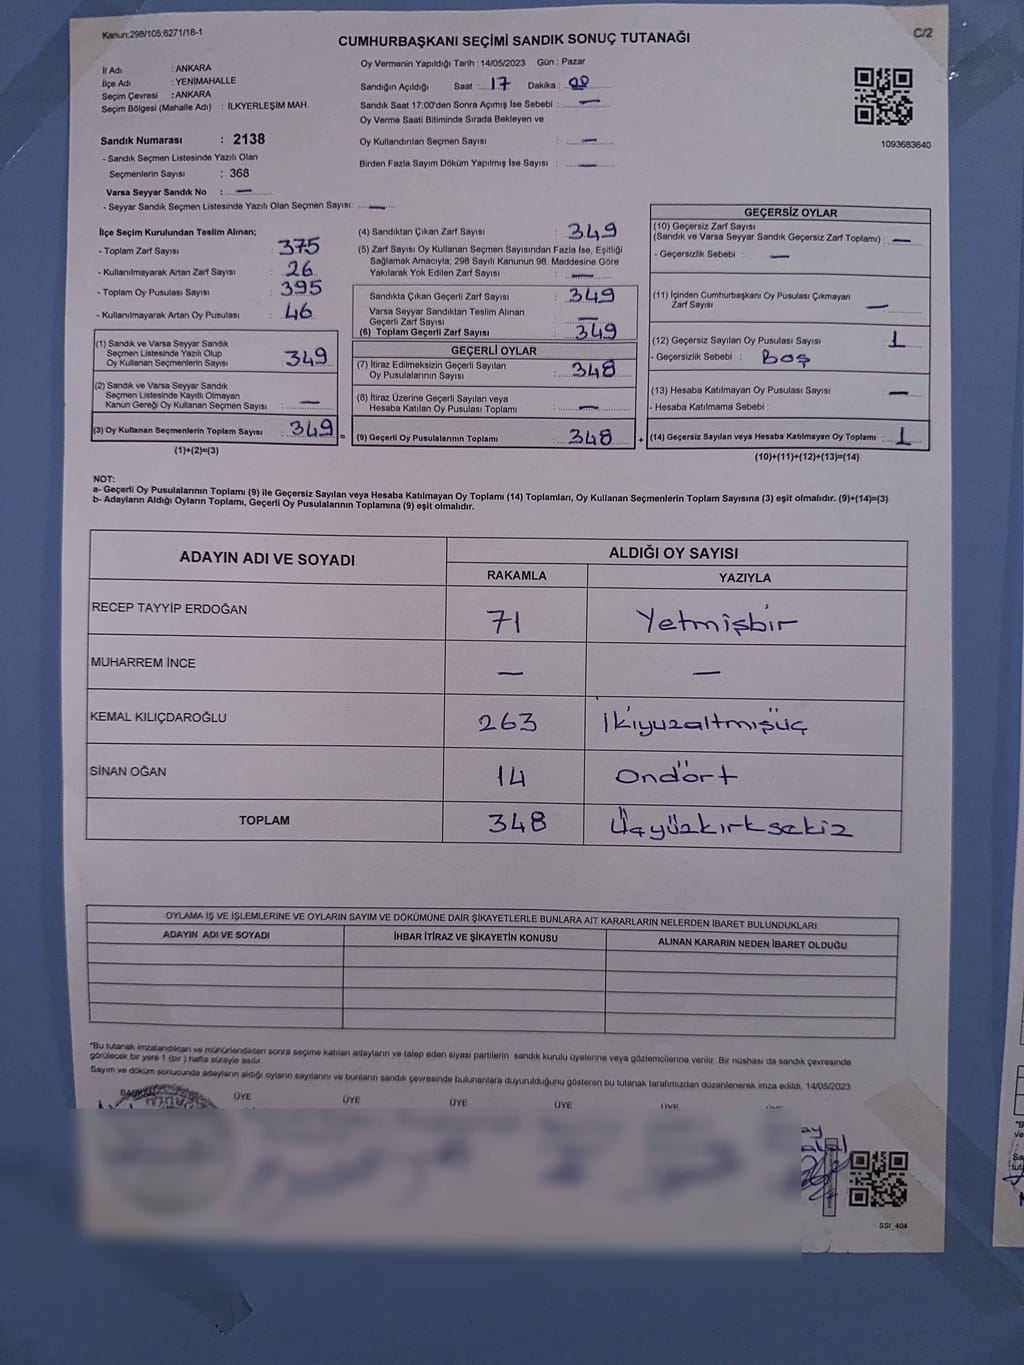 Kanun:298/105,6271/18-1
C/2
CUMHURBAŞKANI SEÇİMİ SANDIK SONUÇ TUTANAĞI
İl Adı : ANKARA
İlçe Adı : YENİMAHALLE
Seçim Çevresi : ANKARA
Seçim Bölgesi (Mahalle Adı) : İLKYERLEŞİM MAH.
Sandık Numarası : 2138
- Sandık Seçmen Listesinde Yazılı Olan
Seçmenlerin Sayısı : 368
Varsa Seyyar Sandık No : —
- Seyyar Sandık Seçmen Listesinde Yazılı Olan Seçmen Sayısı: —
Oy Vermenin Yapıldığı Tarih : 14/05/2023 Gün : Pazar
Sandığın Açıldığı Saat : 17 Dakika : 00
Sandık Saat 17.00'den Sonra Açımış İse Sebebi : —
Oy Verme Saati Bitiminde Sırada Bekleyen ve
Oy Kullandırılan Seçmen Sayısı : —
Birden Fazla Sayım Döküm Yapılmış İse Sayısı : —
1093683640
İlçe Seçim Kurulundan Teslim Alınan;
- Toplam Zarf Sayısı : 375
- Kullanılmayarak Artan Zarf Sayısı : 26
- Toplam Oy Pusulası Sayısı : 395
- Kullanılmayarak Artan Oy Pusulası : 46
(1) Sandık ve Varsa Seyyar Sandık
Seçmen Listesinde Yazılı Olup
Oy Kullanan Seçmenlerin Sayısı : 349
(2) Sandık ve Varsa Seyyar Sandık
Seçmen Listesinde Kayıtlı Olmayan
Kanun Gereği Oy Kullanan Seçmen Sayısı : —
(3) Oy Kullanan Seçmenlerin Toplam Sayısı : 349 =
(1)+(2)=(3)
(4) Sandıktan Çıkan Zarf Sayısı : 349
(5) Zarf Sayısı Oy Kullanan Seçmen Sayısından Fazla İse, Eşitliği
Sağlamak Amacıyla; 298 Sayılı Kanunun 98. Maddesine Göre
Yakılarak Yok Edilen Zarf Sayısı : —
Sandıkta Çıkan Geçerli Zarf Sayısı : 349
Varsa Seyyar Sandıktan Teslim Alınan
Geçerli Zarf Sayısı : —
(6) Toplam Geçerli Zarf Sayısı : 349
GEÇERLİ OYLAR
(7) İtiraz Edilmeksizin Geçerli Sayılan
Oy Pusulalarının Sayısı : 348
(8) İtiraz Üzerine Geçerli Sayılan veya
Hesaba Katılan Oy Pusulası Toplamı : —
(9) Geçerli Oy Pusulalarının Toplamı : 348 +
GEÇERSİZ OYLAR
(10) Geçersiz Zarf Sayısı
(Sandık ve Varsa Seyyar Sandık Geçersiz Zarf Toplamı) : —
- Geçersizlik Sebebi : —
(11) İçinden Cumhurbaşkanı Oy Pusulası Çıkmayan
Zarf Sayısı : —
(12) Geçersiz Sayılan Oy Pusulası Sayısı : 1
- Geçersizlik Sebebi : BOŞ
(13) Hesaba Katılmayan Oy Pusulası Sayısı : —
- Hesaba Katılmama Sebebi :
(14) Geçersiz Sayılan veya Hesaba Katılmayan Oy Toplamı : 1
(10)+(11)+(12)+(13)=(14)
NOT:
a- Geçerli Oy Pusulalarının Toplamı (9) ile Geçersiz Sayılan veya Hesaba Katılmayan Oy Toplamı (14) Toplamları, Oy Kullanan Seçmenlerin Toplam Sayısına (3) eşit olmalıdır. (9)+(14)=(3)
b- Adayların Aldığı Oyların Toplamı, Geçerli Oy Pusulalarının Toplamına (9) eşit olmalıdır.
ADAYIN ADI VE SOYADI ALDIĞI OY SAYISI
RAKAMLA YAZIYLA
RECEP TAYYİP ERDOĞAN 71 Yetmişbir
MUHARREM İNCE — —
KEMAL KILIÇDAROĞLU 263 İkiyuzaltmışüç
SİNAN OĞAN 14 Ondört
TOPLAM 348 Üçyüzkırksekiz
OYLAMA İŞ VE İŞLEMLERİNE VE OYLARIN SAYIM VE DÖKÜMÜNE DAİR ŞİKAYETLERLE BUNLARA AİT KARARLARIN NELERDEN İBARET BULUNDUKLARI
ADAYIN ADI VE SOYADI İHBAR İTİRAZ VE ŞİKAYETİN KONUSU ALINAN KARARIN NEDEN İBARET OLDUĞU
*Bu tutanak imzalandıktan ve mühürlendikten sonra seçime katılan adayların ve talep eden siyasi partilerin sandık kurulu üyelerine veya gözlemcilerine verilir. Bir nüshası da sandık çevresinde
görülecek bir yere 1 (bir) hafta süreyle asılır.
Sayım ve döküm sonucunda adayların aldığı oyların sayılarını ve bunların sandık çevresinde bulunanlara duyurulduğunu gösteren bu tutanak tarafımızdan düzenlenerek imza edildi. 14/05/2023
BAŞKAN ÜYE ÜYE ÜYE ÜYE ÜYE
SSI_404